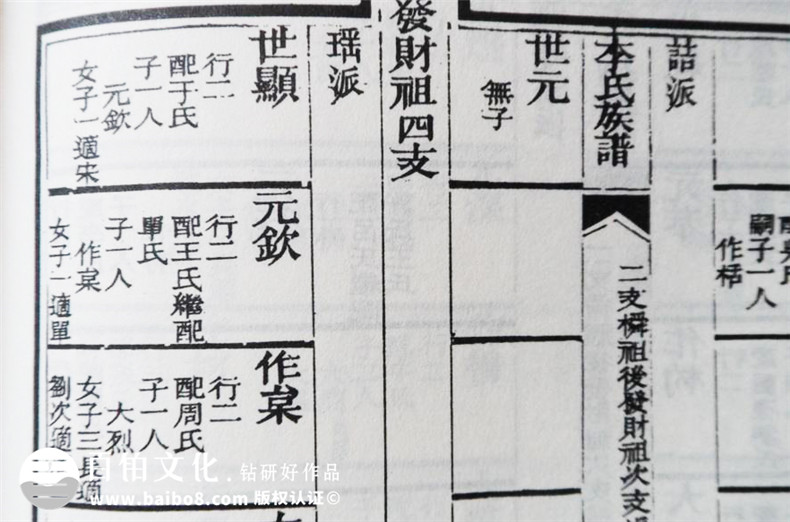 嗣子一人
作栝
詰派
李氏族譜
二支樠祖後發財祖次支
世元
無子
發財祖四支
瑶派
世顯
行二
配于氏
子一人
元欽
女子一適宋
元欽
行二
配王氏繼配
單氏
子一人
作寀
女子一適單
作寀
行二
配周氏
子一人
大烈
女子三長適
劉次適
文化·钻研好作品
www.baibo8.com 版权认证